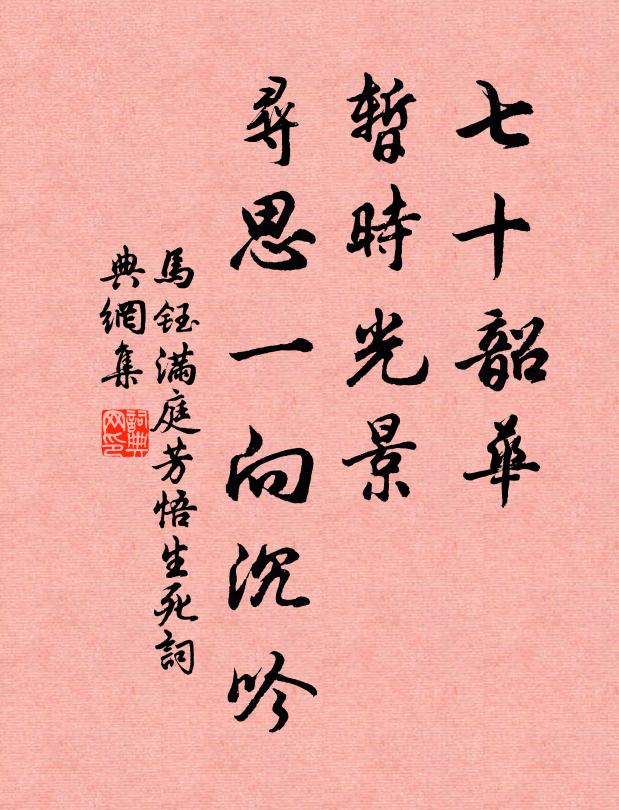 七十韶華
暫時光景
尋思一向沉吟
馬鈺滿庭芳悟生死詞
典網集
詞典網印